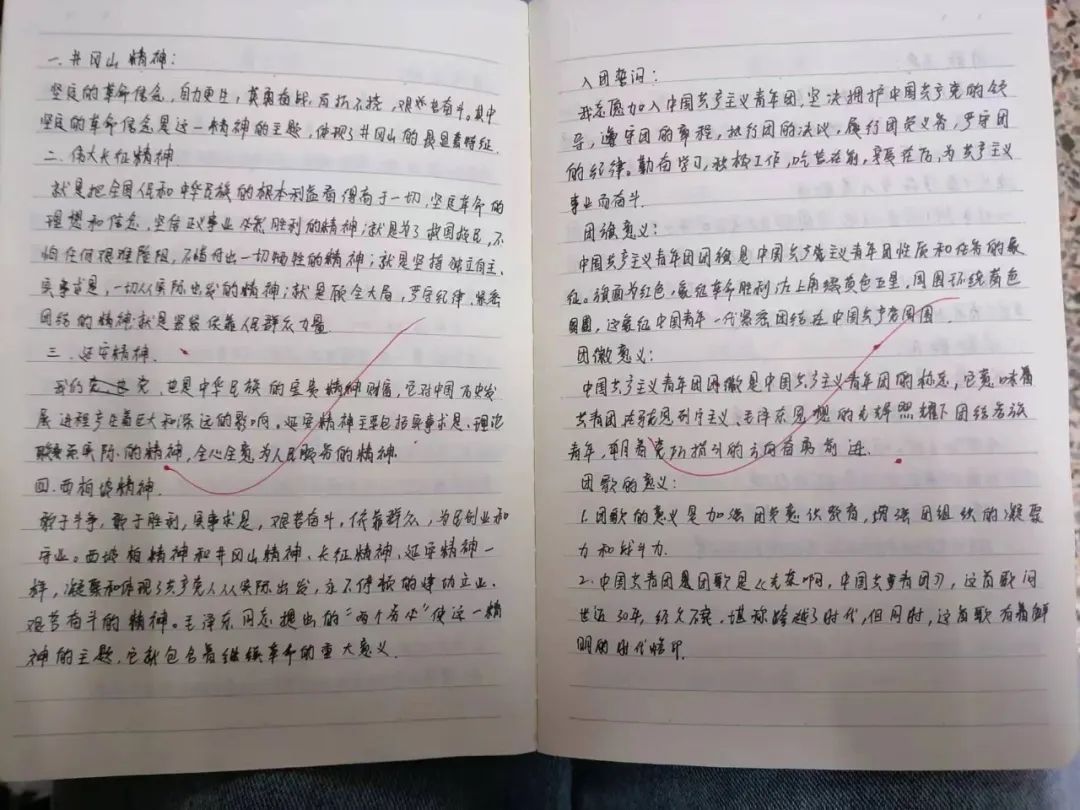 一.井冈山精神:
坚定的革命信念,自力更生,英勇奋战,百折不挠,艰苦奋斗。其中
坚定的革命信念是这一精神的主题,体现了井冈山的最显著特征.
二.伟大长征精神
就是把全国人民和中华民族的根本利益看得高于一切,坚定革命的
理想和信念,坚信正义事业必然胜利的精神;就是为了救国救民,不
怕任何艰难险阻,不惜付出一切牺牲的精神;就是坚持独立自主、
实事求是,一切从实际出发的精神;就是顾全大局,严守纪律、紧密
团结的精神;就是紧紧依靠人民群众力量.
三.延安精神.
我的党,也是中华民族的宝贵精神财富,它对中国历史发
展进程产生着巨大和深远的影响。延安精神主要包括实事求是、理论
联系实际的精神,全心全意为人民服务的精神.
四.西柏坡精神.
敢于斗争,敢于胜利,实事求是,艰苦奋斗,依靠群众,为民创业和
守业。西坡柏精神和井冈山精神、长征精神,延安精神一
样,凝聚和体现了共产党人从实际出发,永不停歇的建功立业、
艰苦奋斗的精神。毛泽东同志提出的“两个务必”使这一精
神的主题,它就包含着继续革命的重大意义.
入团誓词:
我志愿加入中国共产主义青年团,坚决拥护中国共产党的领
导,遵守团的章程,执行团的决议,履行团员义务,严守团
的纪律。勤奋学习,积极工作,吃苦在前,享受在后,为共产主义
事业而奋斗.
团旗意义:
中国共产主义青年团团旗是中国共产主义青年团性质和任务的象
征。旗面为红色,象征革命胜利;左上角缀黄色五星,周围环绕黄色
圆圈,这象征中国青年一代紧密团结在中国共产党周围.
团徽意义:
中国共产主义青年团团徽是中国共产主义青年团的标志,它意味着
共青团在马克思列宁主义、毛泽东思想的光辉照耀下团结各族
青年,朝着党所指引的方向奋勇前进.
团歌的意义:
1.团歌的意义是加强团员意识教育,增强团组织的凝聚
力和战斗力.
2.中国共青团是团歌是《光荣啊,中国共青团》,这首歌问
世近30年,经久不衰,堪称跨越了时代,但同时,这首歌有着鲜
明的时代烙印.